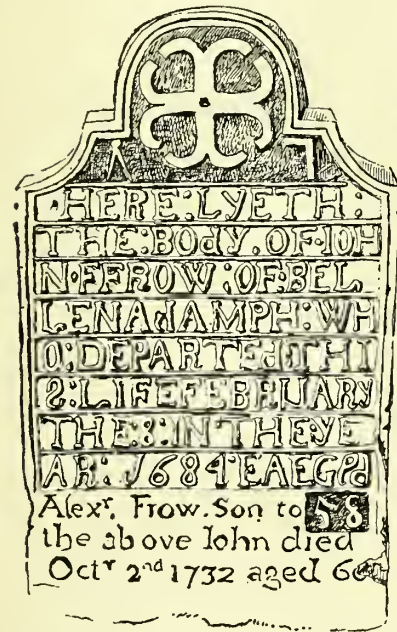 ·HERE:LYETH:
THE:BOdY.OF·IOH
N·FFROW:OF:BEL
LENAdAMPH:WH
O:DEPARTEd:THI
S:LIFEFEBRUARY
THE:8:IN THEYE
AR: 1684:EAEGPd
Alexʳ. Frow. Son to 58
the above Iohn died
Octʳ 2ⁿᵈ 1732 aged